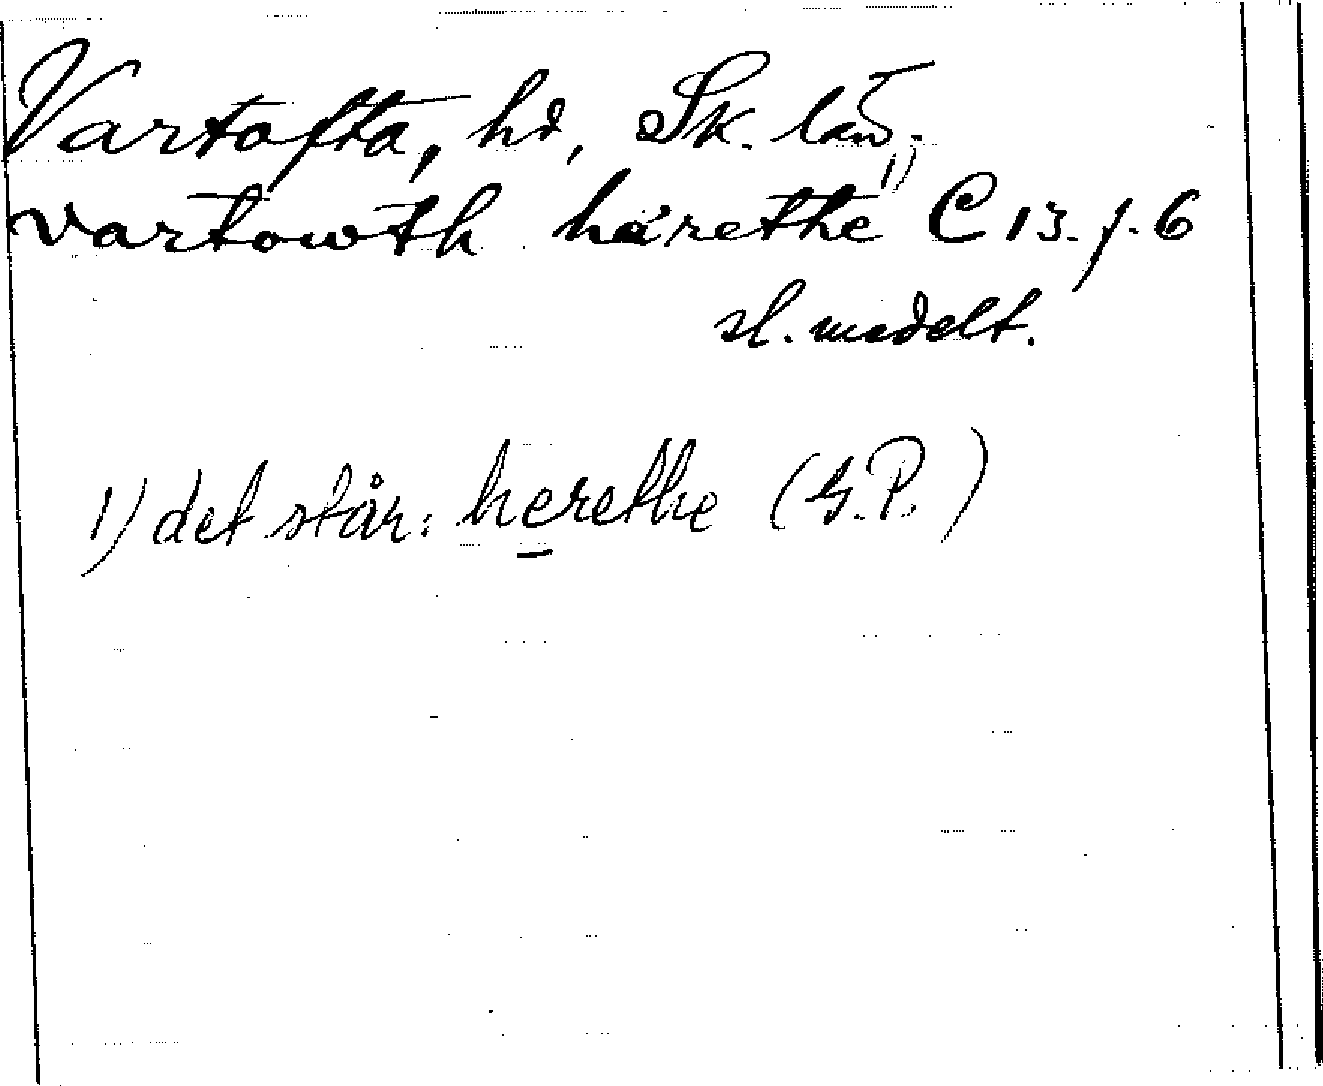 Vartofta, hd, Sk. län.
vartowth härethe 1) C 13. f. 6
sl. medelt.
1) det står: herethe (G.P.)